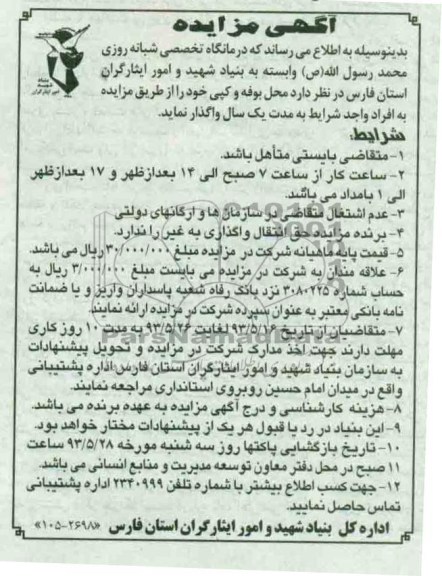 آگهی مزایده
بنیاد
شهید
و امور ایثارگران
بدینوسیله به اطلاع می رساند که درمانگاه تخصصی شبانه روزی
محمد رسول الله(ص) وابسته به بنیاد شهید و امور ایثارگران
استان فارس در نظر دارد محل بوفه و کپی خود را از طریق مزایده
به افراد واجد شرایط به مدت یک سال واگذار نماید.
شرایط:
۱- متقاضی بایستی متأهل باشد.
۲- ساعت کار از ساعت ۷ صبح الی ۱۴ بعدازظهر و ۱۷ بعدازظهر
الی ۱ بامداد می باشد.
۳- عدم اشتغال متقاضی در سازمان ها و ارگانهای دولتی
۴- برنده مزایده حق انتقال و اگذاری به غیر را ندارد.
۵- قیمت پایه ماهیانه شرکت در مزایده مبلغ ۳۰/۰۰۰/۰۰۰ ریال می باشد.
۶- علاقه مندان به شرکت در مزایده می بایست مبلغ ۳/۰۰۰/۰۰۰ ریال به
حساب شماره ۳۰۸۰۲۲۵ نزد بانک رفاه شعبه پاسداران واریز و یا ضمانت
نامه بانکی معتبر به عنوان سپرده شرکت در مزایده ارائه نمایند.
۷- متقاضیان از تاریخ ۹۳/۵/۱۶ لغایت ۹۳/۵/۲۶ به مدت ۱۰ روز کاری
مهلت دارند جهت اخذ مدارک شرکت در مزایده و تحویل پیشنهادات
به سازمان بنیاد شهید و امور ایثارگران استان فارس اداره پشتیبانی
واقع در میدان امام حسین روبروی استانداری مراجعه نمایند.
۸- هزینه کارشناسی و درج آگهی مزایده به عهده برنده می باشد.
۹- این بنیاد در رد یا قبول هر یک از پیشنهادات مختار خواهد بود.
۱۰- تاریخ بازگشایی پاکتها روز سه شنبه مورخه ۹۳/۵/۲۸ ساعت
۱۱ صبح در محل دفتر معاون توسعه مدیریت و منابع انسانی می باشد.
۱۲- جهت کسب اطلاع بیشتر با شماره تلفن ۲۳۴۰۹۹۹ اداره پشتیبانی
تماس حاصل نمایید.
اداره کل بنیاد شهید و امور ایثارگران استان فارس «۱۰۵-۲۶۹۸»
ParsNamadData